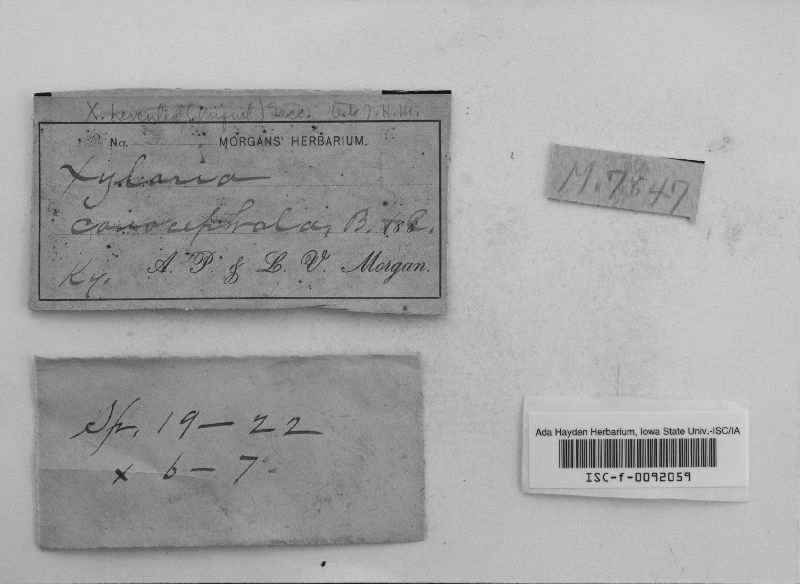 X. (Miquel) Sacc. J. H. M.
No. MORGANS' HERBARIUM.
Xylaria
conocephala, B. & C.
188
Ky. A. P. & L. V. Morgan.
M. 7847
Sp. 19-22
x 6-7
Ada Hayden Herbarium, Iowa State Univ.-ISC/IA
ISC-f-0092059